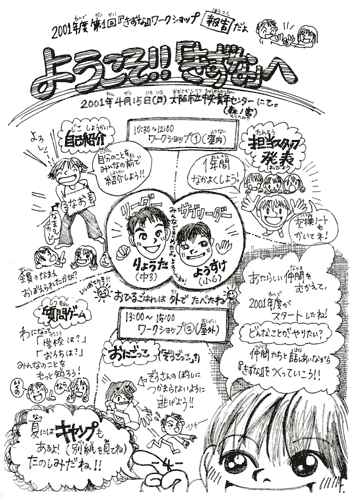 2001年度 第1回『きずな』ワークショップ 報告だよ
ようこそ!!『きずな』へ
2001年4月15日(日) 大阪市立中央青年センターにて。
10:30〜12:00
ワークショップ①(室内)
よろしく!
自己紹介
自分のことを
みんなの前で
紹介しよう!!
なおき
担当スタッフ
発表
1年間
なかよくしよう!
交換ノートも
かいてネ!
リーダー
りょうた
(中3)
サブリーダー
ようすけ
(小6)
全員のなまえ
おぼえられたかな?
おひるごはんは 外で たべたね
13:00〜15:00
ワークショップ②(屋外)
質問ゲーム
わになって
「学校は?」
「おうちは?」
みんなのことを
もっと知ろう!
おにごっこ
ぞうさんの
つかまらないように
逃げよう!!
あたらしい仲間を
むかえて、
2001年度が
スタートしたね!
どんなことがやりたい?
仲間たちと話しあいながら
『きずな』をつくっていこう!!
夏には キャンプも
あるよ! (別紙を見てね)
たのしみだね!!
-4-